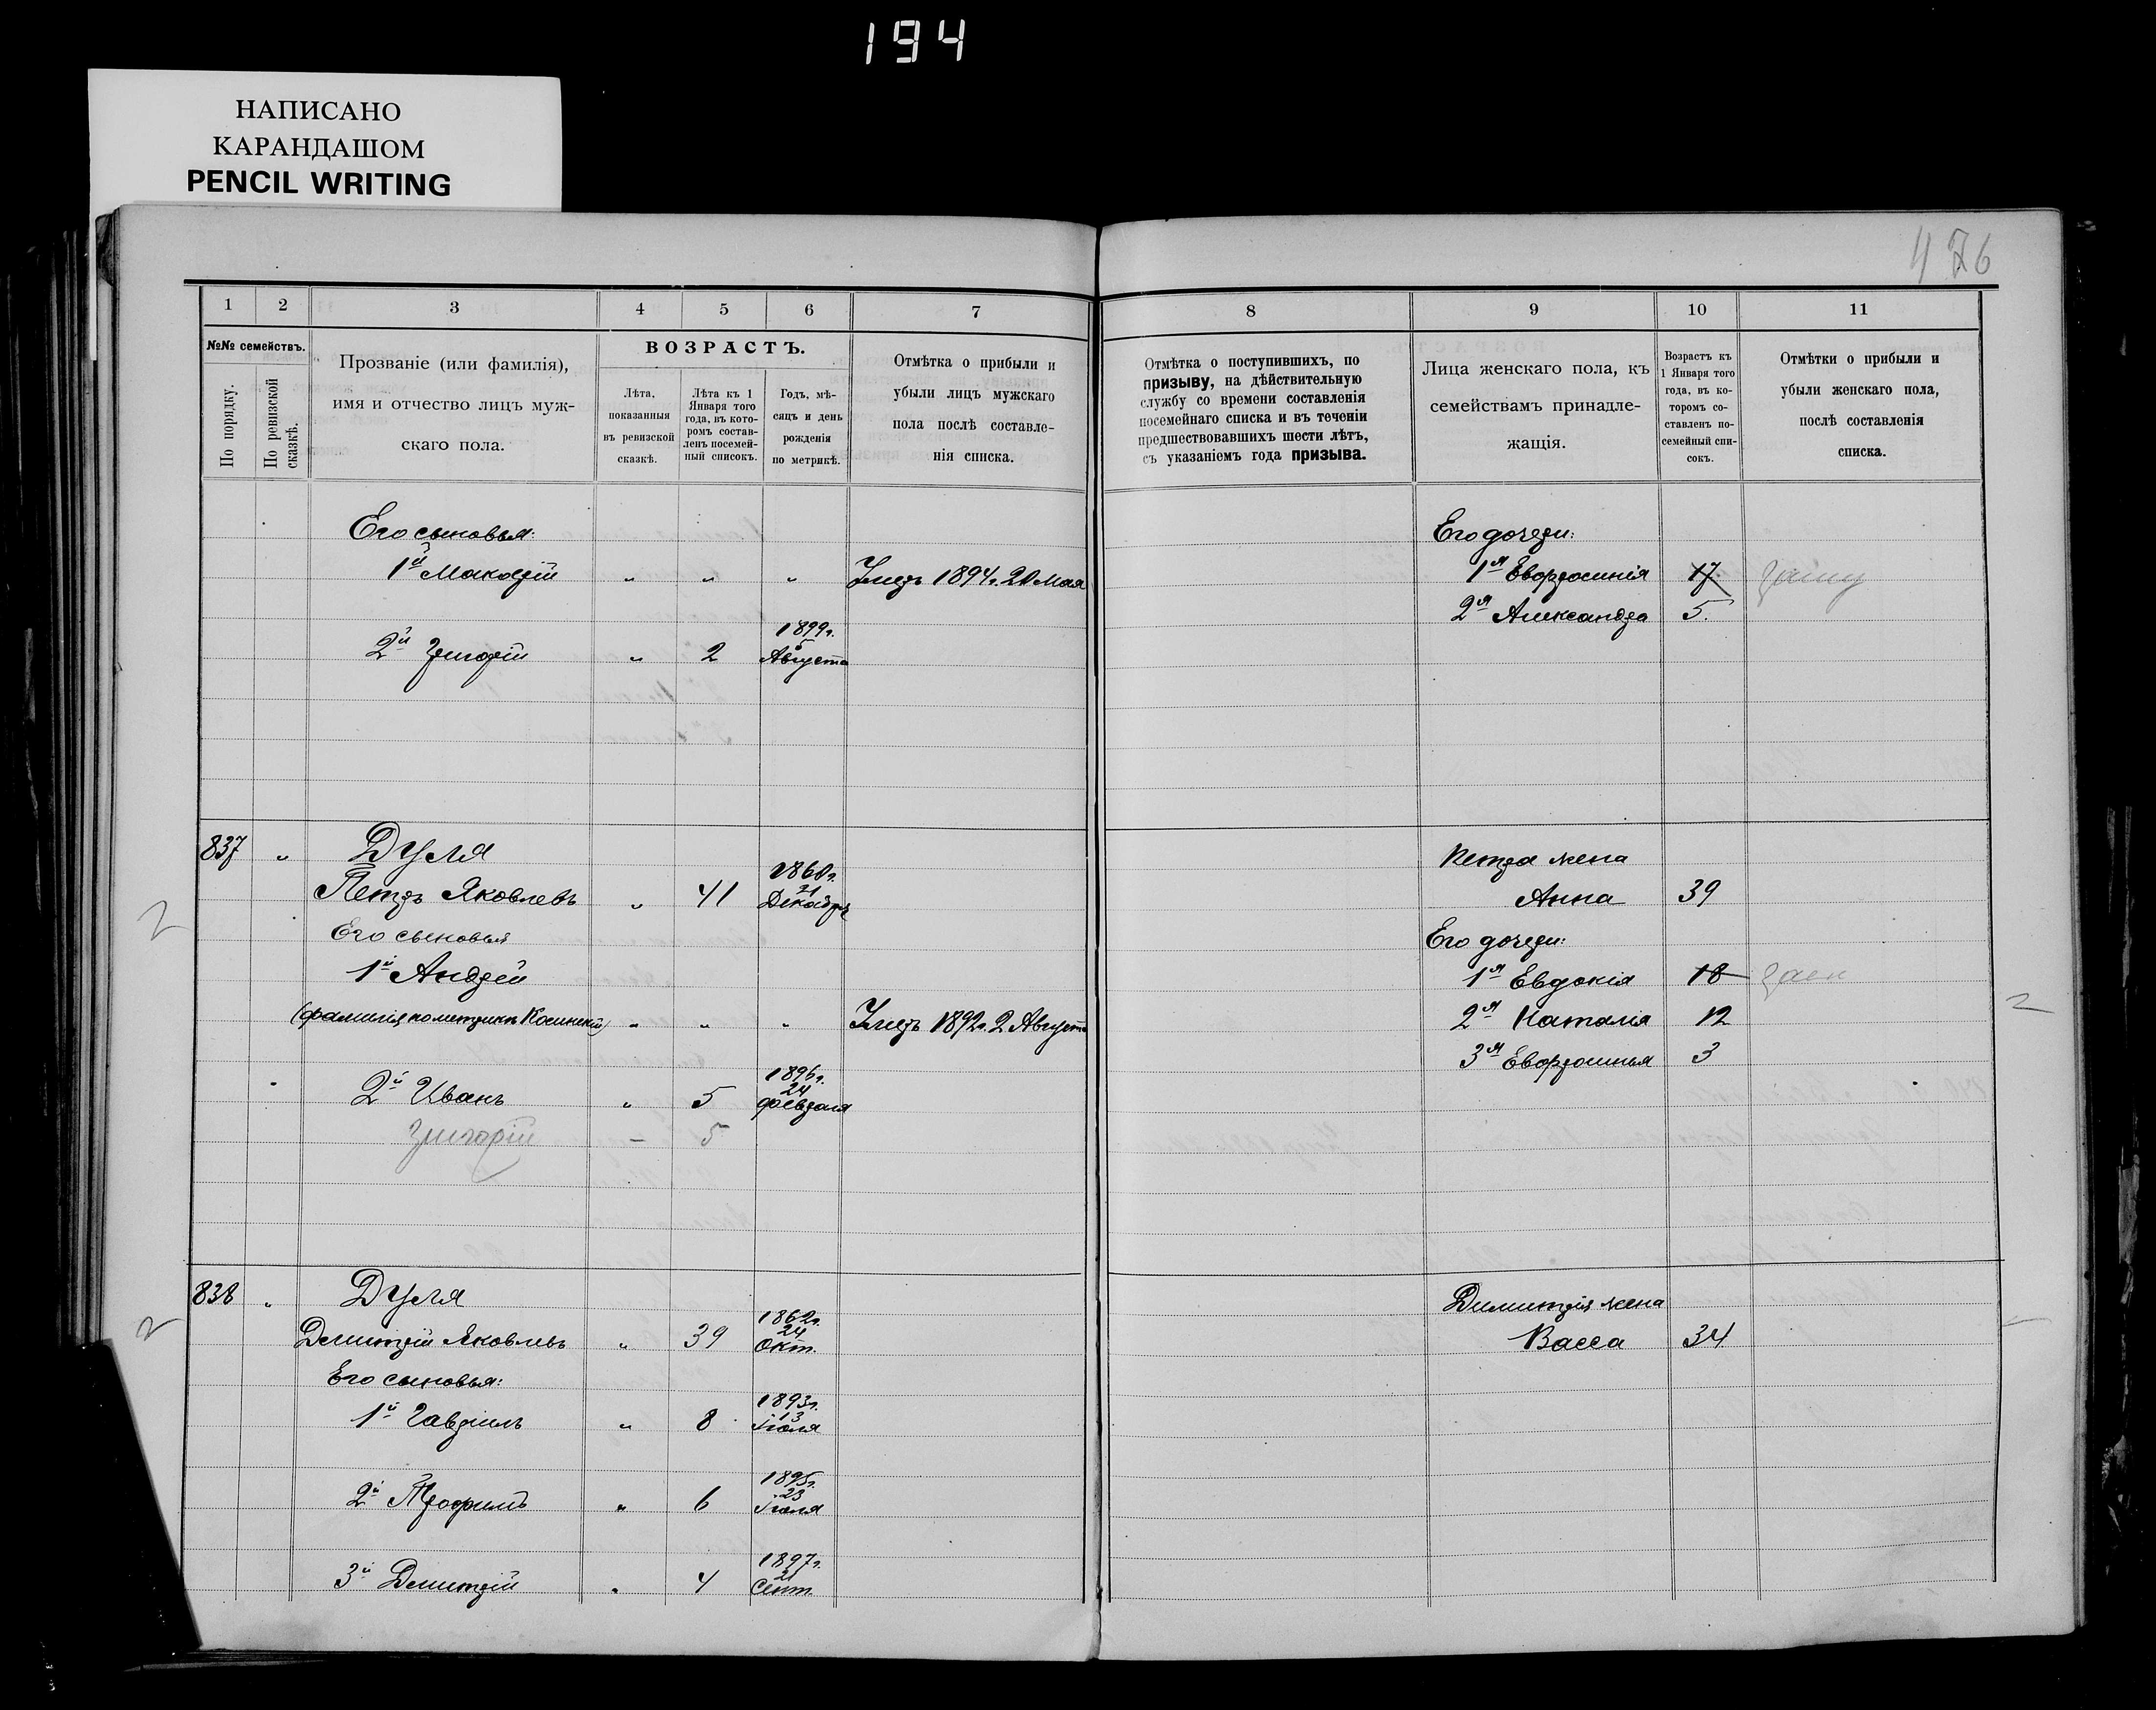 194
НАПИСАНО
КАРАНДАШОМ
PENCIL WRITING
1 2 3 4 5 6 7
№№ семействъ.
По порядку.
По ревизской сказкѣ.
Прозваніе (или фамилія),
имя и отчество лицъ муж-
скаго пола.
ВОЗРАСТЪ.
Лѣта,
показанныя
въ ревизской
сказкѣ.
Лѣта къ 1
Января того
года, въ кото-
ромъ состав-
ленъ посемей-
ный списокъ.
Годъ, мѣ-
сяцъ и день
рожденія
по метрикѣ.
Отмѣтка о прибыли и
убыли лицъ мужскаго
пола послѣ составле-
нія списка.
Его сыновья:
1й Макарій " " " Умеръ 1894г. 20 Мая
1899г.
2й Григорій " 2 5 Августа
837 " Дуля
1860г.
Петръ Яковлевъ " 41 21 Декабря
Его сыновья
1й Андрей
(фамилія по метрикѣ Косинскій) " " " Умеръ 1892г. 2 Августа
1896г.
24
2й Иванъ " 5 февраля
Григорій — 5
838 " Дуля
1862г.
24
Дмитрій Яковлевъ " 39 Окт.
Его сыновья:
1893г.
13
1й Гавріилъ " 8 Іюля
1895г.
23
2й Трофимъ " 6 Іюля
1897г.
21
3й Дмитрій " 4 Сент.
476
8 9 10 11
Отмѣтка о поступившихъ, по
призыву, на дѣйствительную
службу со времени составленія
посемейнаго списка и въ теченіи
предшествовавшихъ шести лѣтъ,
съ указаніемъ года призыва.
Лица женскаго пола, къ
семействамъ принадле-
жащія.
Возрастъ къ
1 Января того
года, въ ко-
торомъ со-
ставленъ по-
семейный спи-
сокъ.
Отмѣтки о прибыли и
убыли женскаго пола,
послѣ составленія
списка.
Его дочери:
1я Евфросинія 17 замуж
2я Александра 5.
Петра жена
Анна 39
Его дочери:
1я Евдокія 18
2я Наталія 12
3я Евфросинья 3
Димитрія жена
Васса 34